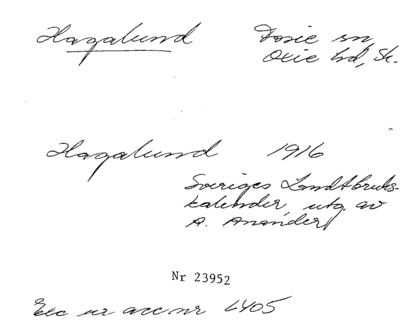 Hagalund
Fosie sn,
Oxie hd, Sk.
Hagalund 1916
Sveriges Landtbruks-
kalender, utg. av
A. Anander
Nr 23952
Exc ur acc nr 4405